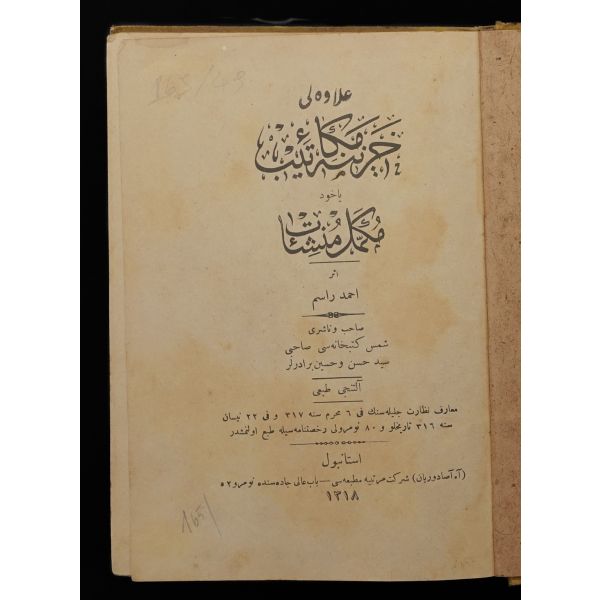 165/49
علاوه لی
خزینهٔ مکاتیب
یاخود
مکمل منشئات
اثر
احمد راسم
صاحب و ناشری
شمس کتبخانه‌سی صاحبی
سید حسن و حسین برادرلر
آلتنجی طبعی
معارف نظارت جلیله‌سنك فی ٦ محرم سنه ٣١٧ و فی ٢٢ نیسان
سنه ٣١٦ تاریخلو و ٨٠ نومرولی رخصتنامه سیله طبع اولنمشدر
استانبول
(آ. آصادوریان) شرکت مرتبیه مطبعه‌سی — باب عالی جاده‌سنده نومرو ٥٢
١٣١٨
165/